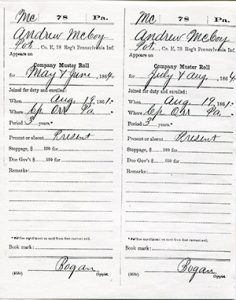 Mc 78 Pa.
Andrew McCoy
Pvt., Co. E, 78 Reg't Pennsylvania Inf.
Appears on
Company Muster Roll
for May & June, 1864.
Joined for duty and enrolled:
When Aug 19, 1861.
Where Cp Orr Pa.
Period 3 years.*
Present or absent Present
Stoppage, $ 100 for
Due Gov't $ 100 for
Remarks:
*See enrollment on card from first muster roll.
Book mark:
Bogan
(858) Copyist.
Mc 78 Pa.
Andrew McCoy
Pvt., Co. E, 78 Reg't Pennsylvania Inf.
Appears on
Company Muster Roll
for July & Aug, 1864.
Joined for duty and enrolled:
When Aug 19, 1861.
Where Cp Orr Pa.
Period 3 years.*
Present or absent Present
Stoppage, $ 100 for
Due Gov't $ 100 for
Remarks:
*See enrollment on card from first muster roll.
Book mark:
Bogan
(858) Copyist.